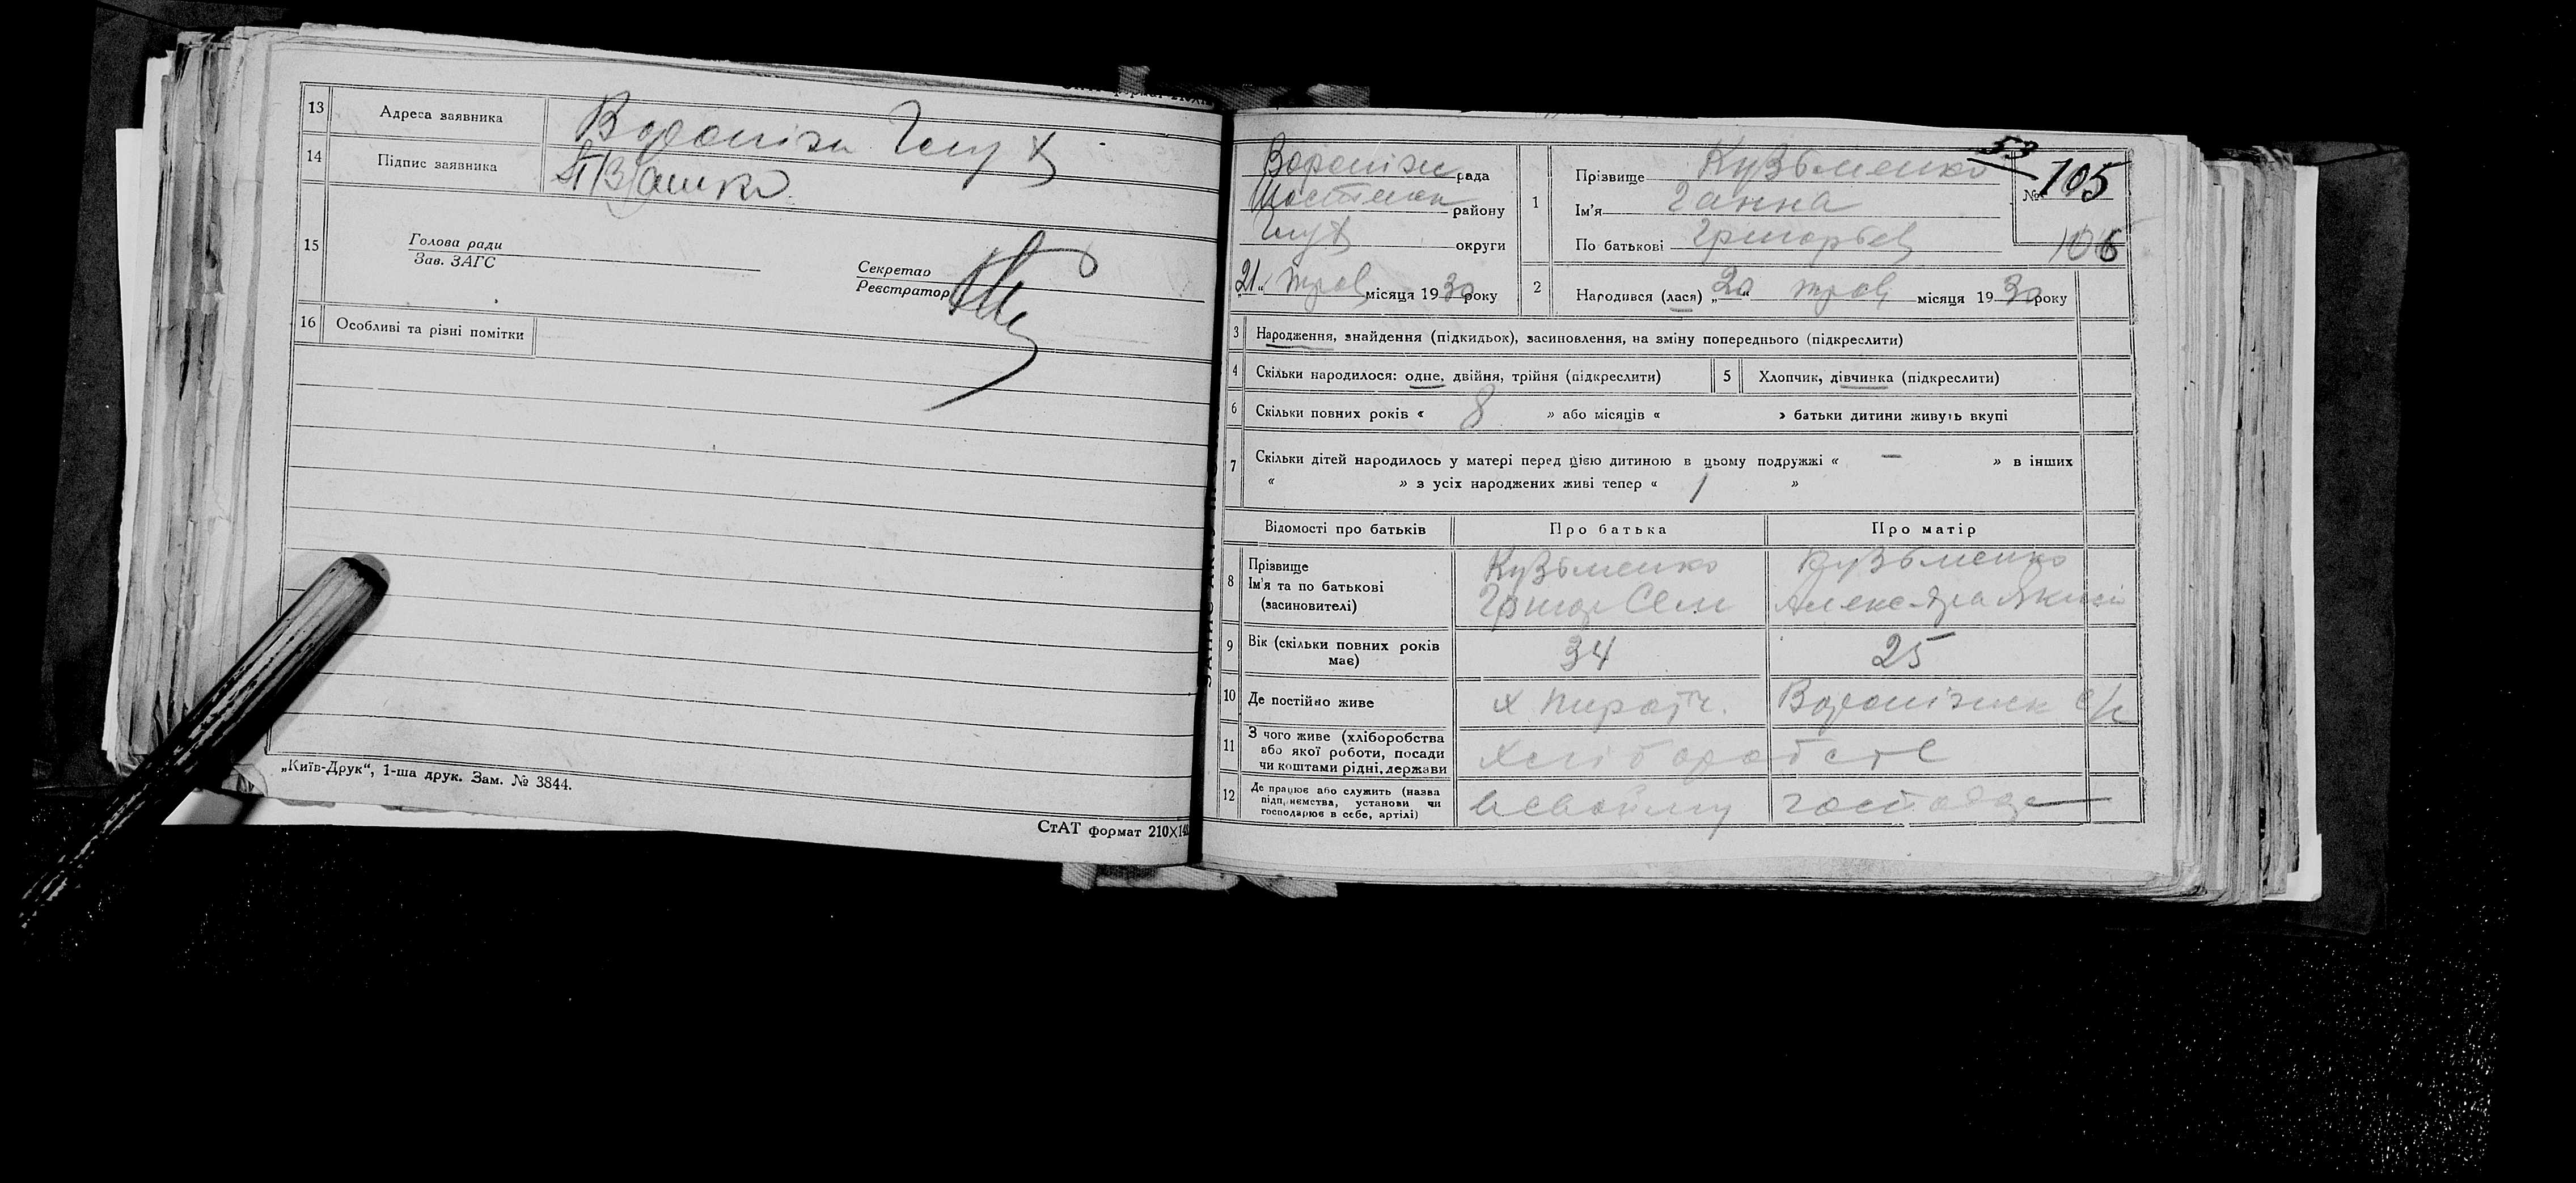 13 Адреса заявника Вороніж Глух
14 Підпис заявника
15 Голова ради
Зав. ЗАГС
Секретар
Реєстратор
16 Особливі та різні помітки
„Київ-Друк“, 1-ша друк. Зам. № 3844.
СтАТ формат 210×14
Вороніж рада
Шостенск району
Глух округи
„21“ трав місяця 1930 року
1 Прізвище Кузьменко
Ім'я Ганна
По батькові Григорьев
53
№ 105
106
2 Народився (лася) „20“ трав місяця 1930 року
3 Народження, знайдення (підкидьок), засиновлення, на зміну попереднього (підкреслити)
4 Скільки народилося: одне, двійня, трійня (підкреслити) 5 Хлопчик, дівчинка (підкреслити)
6 Скільки повних років « 8 » або місяців « » батьки дитини живуть вкупі
7 Скільки дітей народилось у матері перед цією дитиною в цьому подружжі « — » в інших
« » з усіх народжених живі тепер « 1 »
Відомості про батьків Про батька Про матір
8 Прізвище Кузьменко Кузьменко
Ім'я та по батькові Григор Сем Александра
(засиновителі)
9 Вік (скільки повних років має) 34 25
10 Де постійно живе х Пирот. Воронізск с/р
11 З чого живе (хліборобства або якої роботи, посади чи коштами рідні, держави хлібороботв
12 Де працює або служить (назва підприємства, установи чи господарює в себе, артілі) в своїму господ